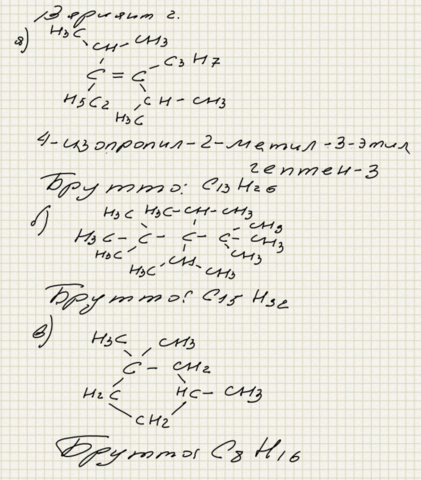 Вариант 2.
а) H3C CH - CH3
C = C C3H7
H5C2 CH - CH3
H3C
4-изопропил-2-метил-3-этил
гептен-3
Брутто: C13H26
б) H3C H3C-CH-CH3
H3C- C - C - C - CH3 CH3
H3C CH CH3
H3C CH3
Брутто: C15H32
в)
H3C CH3
C - CH2
H2C HC - CH3
CH2
Брутто: C8H16